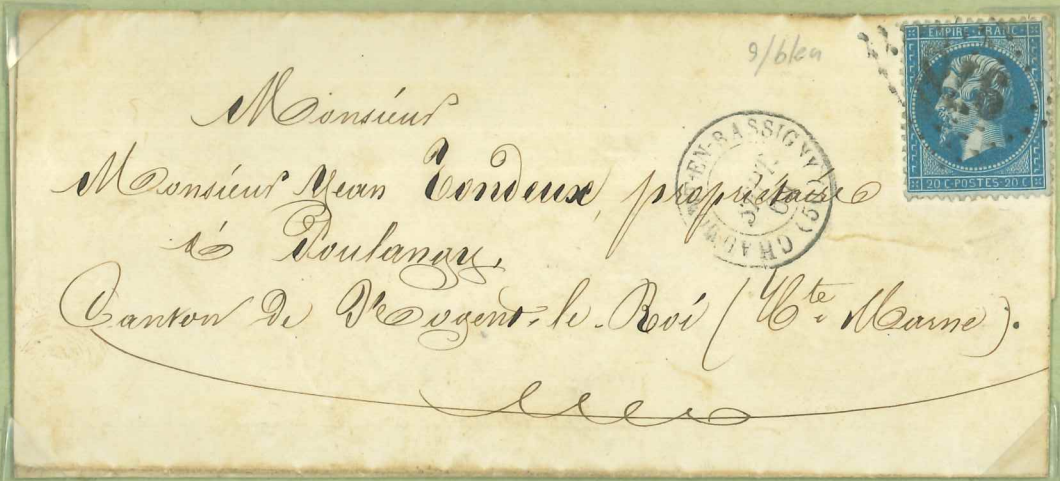 9/bleu
EMPIRE FRANC
20 C POSTES 20 C
EN-BASSIGNY
Monsieur
Monsieur Jean Tondeux, propriétaire
à Poulangy,
Canton de Nogent-le-Roi (Hte. Marne).